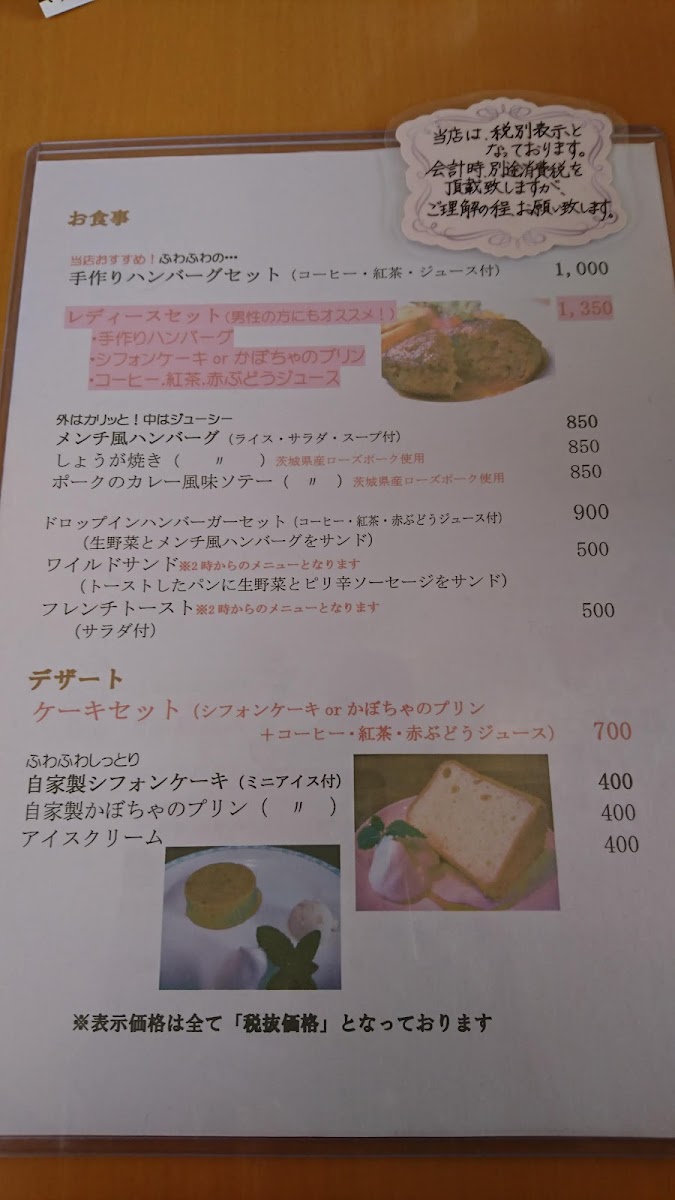 当店は、税別表示と
なっております。
会計時、別途消費税を
頂戴致しますが、
ご理解の程、お願い致します。
お食事
当店おすすめ！ふわふわの…
手作りハンバーグセット（コーヒー・紅茶・ジュース付） 1,000
レディースセット（男性の方にもオススメ！） 1,350
・手作りハンバーグ
・シフォンケーキ or かぼちゃのプリン
・コーヒー.紅茶.赤ぶどうジュース
外はカリッと！中はジューシー
メンチ風ハンバーグ（ライス・サラダ・スープ付） 850
しょうが焼き（ 〃 ）茨城県産ローズポーク使用 850
ポークのカレー風味ソテー（ 〃 ）茨城県産ローズポーク使用 850
ドロップインハンバーガーセット（コーヒー・紅茶・赤ぶどうジュース付） 900
（生野菜とメンチ風ハンバーグをサンド）
ワイルドサンド※2時からのメニューとなります 500
（トーストしたパンに生野菜とピリ辛ソーセージをサンド）
フレンチトースト※2時からのメニューとなります 500
（サラダ付）
デザート
ケーキセット（シフォンケーキ or かぼちゃのプリン
＋コーヒー・紅茶・赤ぶどうジュース） 700
ふわふわしっとり
自家製シフォンケーキ（ミニアイス付） 400
自家製かぼちゃのプリン（ 〃 ） 400
アイスクリーム 400
※表示価格は全て「税抜価格」となっております